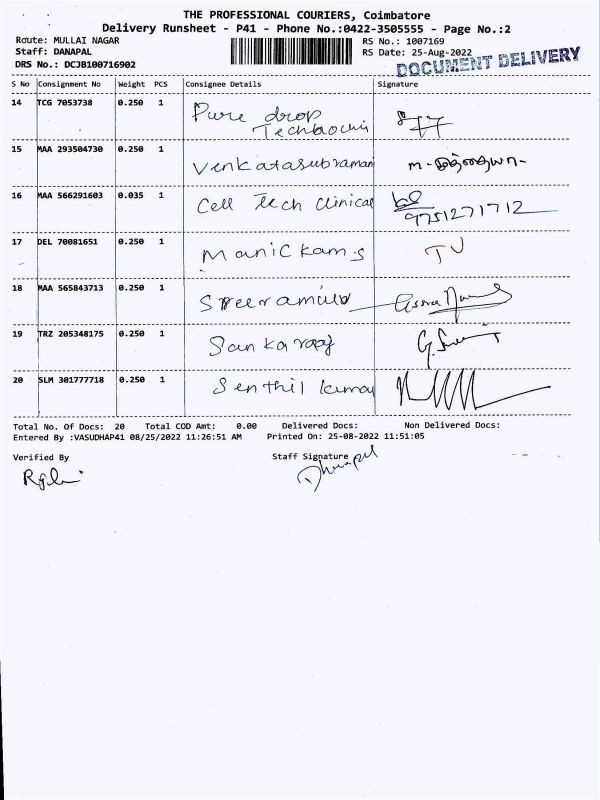 THE PROFESSIONAL COURIERS, Coimbatore
Delivery Runsheet - P41 - Phone No.:0422-3505555 - Page No.:2
Route: MULLAI NAGAR RS No.: 1007169
Staff: DANAPAL RS Date: 25-Aug-2022
DRS No.: DCJB100716902 DOCUMENT DELIVERY
S No Consignment No Weight PCS Consignee Details Signature
14 TCG 7053738 0.250 1 Pure drop
15 MAA 293504730 0.250 1 Venkatasubraman
16 MAA 566291603 0.035 1 Cell Tech Clinical
9751271712
17 DEL 70081651 0.250 1 Manickam.s
18 MAA 565843713 0.250 1
19 TRZ 205348175 0.250 1 Sankaraj
20 SLM 301777718 0.250 1 Senthil kumar
Total No. Of Docs: 20 Total COD Amt: 0.00 Delivered Docs: Non Delivered Docs:
Entered By :VASUDHAP41 08/25/2022 11:26:51 AM Printed On: 25-08-2022 11:51:05
Verified By Staff Signature